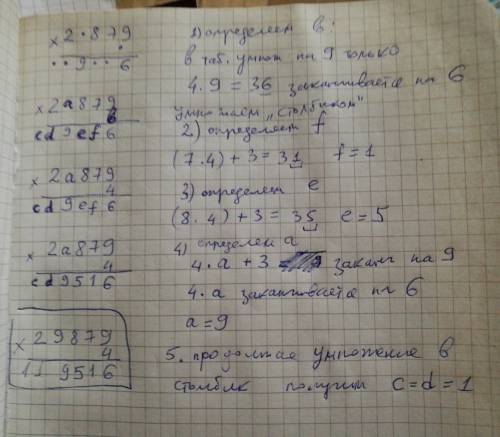 × 2·879
·
··9··6
× 2a879
в
cd9ef6
× 2a879
4
cd9ef6
× 2a879
4
cd9516
× 29879
4
119516
1) определяем в:
в таб. умнож на 9 только
4·9=36 заканчивается на 6
умножаем "столбиком"
2) определяем f
(7·4)+3=31 f=1
3) определяем e
(8·4)+3=35 e=5
4) определяем a
4·a+3 заканч на 9
4·a заканчивается на 6
a=9
5. продолжая умножение в
столбик получим c=d=1